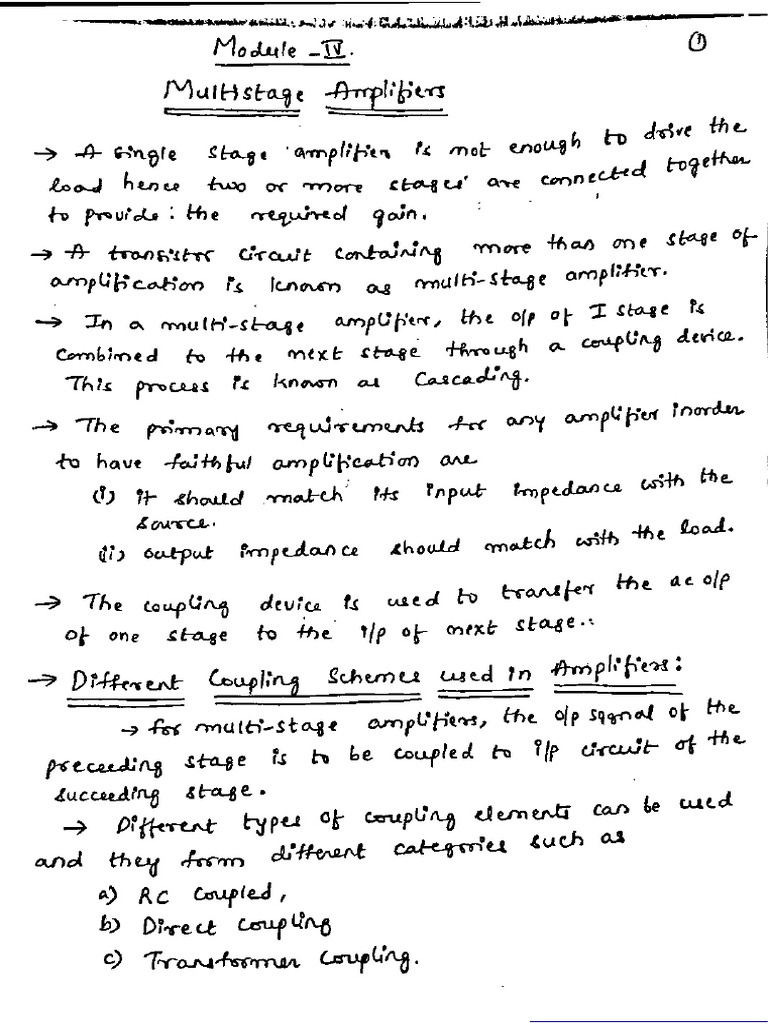 Module - IV.
①
Multistage Amplifiers
→ A single stage amplifier is not enough to drive the
load hence two or more stages are connected together
to provide the required gain.
→ A transistor circuit containing more than one stage of
amplification is known as multi-stage amplifier.
→ In a multi-stage amplifier, the o/p of I stage is
combined to the next stage through a coupling device.
This process is known as Cascading.
→ The primary requirements for any amplifier inorder
to have faithful amplification are
(i) it should match its input impedance with the
source.
(ii) output impedance should match with the load.
→ The coupling device is used to transfer the ac o/p
of one stage to the i/p of next stage.
→ Different Coupling Schemes used in Amplifiers:
→ for multi-stage amplifiers, the o/p signal of the
preceeding stage is to be coupled to i/p circuit of the
succeeding stage.
→ Different types of coupling elements can be used
and they form different categories such as
a) RC Coupled,
b) Direct Coupling
c) Transformer Coupling.